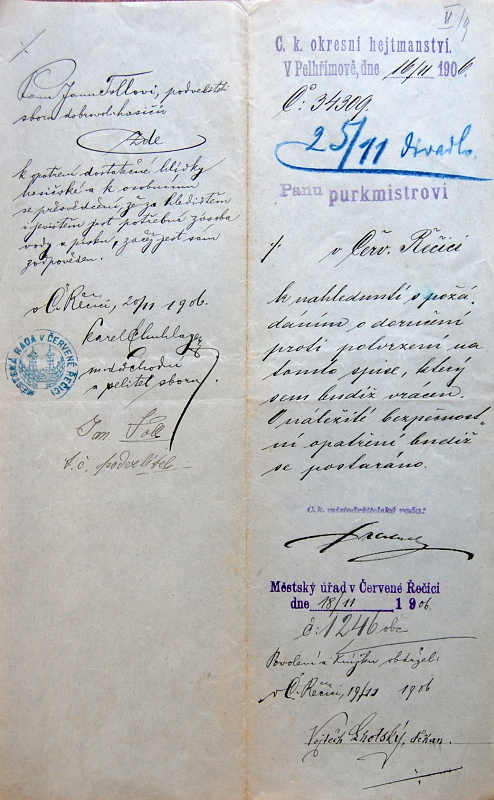 Panu Janu Tollovi, podveliteli
sboru dobrovol. hasičů
Zde
k opatření dostatečné hlídky
hasičské a k osobnímu
se přesvědčení, že za hledištěm
i jevištěm jest potřebná zásoba
vody a písku, začež jest sám
zodpověden.
v Č. Řečici, 20/11 1906.
Karel
a velitel sboru
MĚSTSKÁ RADA V ČERVENÉ ŘEČICI
Jan Toll
t. č. podvelitel
VI/9
C. k. okresní hejtmanství.
V Pelhřimově, dne 16/11 1906.
Č: 34309.
25/11 divadlo.
Panu purkmistrovi
v Červ. Řečici
k nahlédnutí s požá-
dáním o doručení
proti potvrzení na
tomto spise, který
sem budiž vrácen.
O náležité bezpečnost-
ní opatření budiž
se postaráno.
C. k. místodržitelský rada:
Městský úřad v Červené Řečici
dne 18/11 1906.
č: 1246 obc
Povolení a knížku obdržel:
v Č. Řečici, 19/11 1906
Vojtěch děkan.